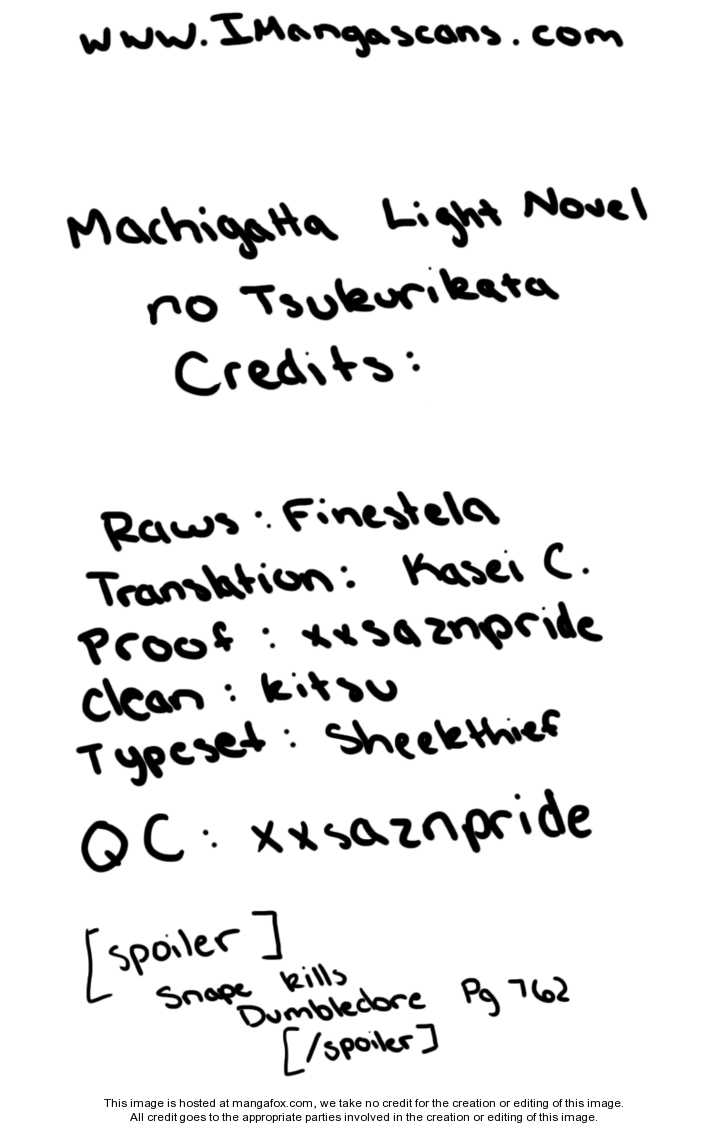 www.IMangascans.com
Machigatta Light Novel
no Tsukurikata
Credits:
Raws: Finestela
Translation: Kasei C.
Proof: xxsaznpride
clean: kitsu
Typeset: Sheekthief
QC: xxsaznpride
[spoiler]
Snape kills
Dumbledore Pg 762
[/spoiler]
This image is hosted at mangafox.com, we take no credit for the creation or editing of this image.
All credit goes to the appropriate parties involved in the creation or editing of this image.